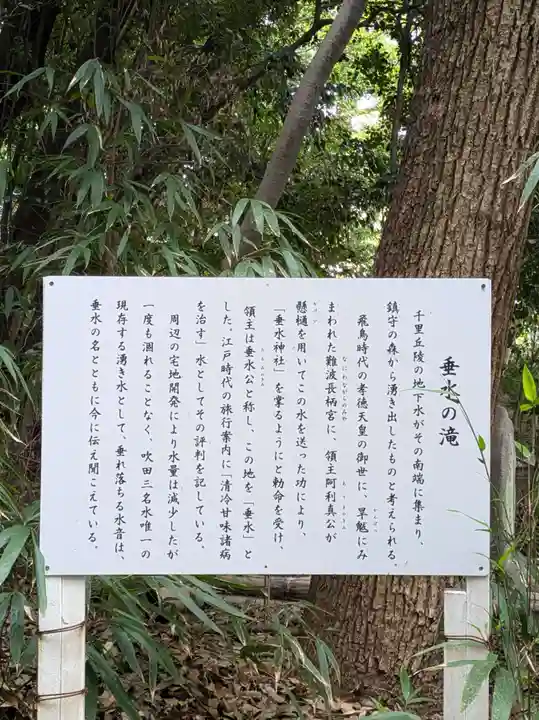 垂水の滝
千里丘陵の地下水がその南端に集まり、
鎮守の森から湧き出したものと考えられる。
飛鳥時代の孝徳天皇の御世に、旱魃にみ
まわれた難波長柄宮に、領主阿利真公が
懸樋を用いてこの水を送った功により、
「垂水神社」を掌るようにと勅命を受け、
領主は垂水公と称し、この地を「垂水」と
した。江戸時代の旅行案内に「清冷甘味諸病
を治す」水としてその評判を記している。
周辺の宅地開発により水量は減少したが
一度も涸れることなく、吹田三名水唯一の
現存する湧き水として、垂れ落ちる水音は、
垂水の名とともに今に伝え聞こえている。